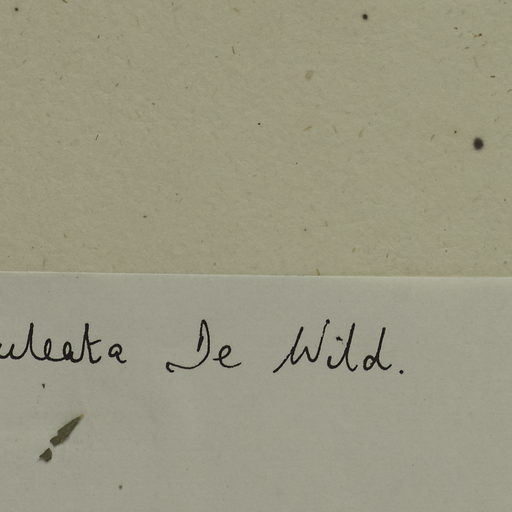 uleata De Wild.